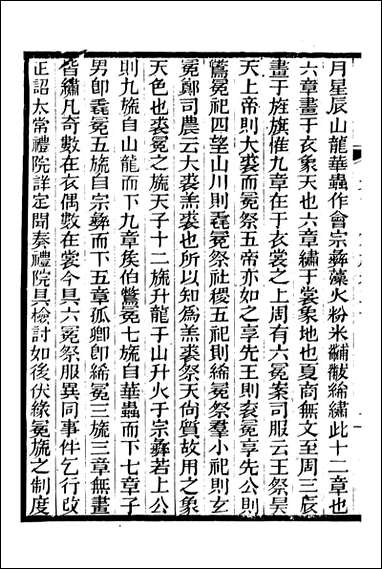 月星辰山龍華蟲作會宗彝藻火粉米黼黻絺繡此十二章也
六章畫于衣象天也六章繡于裳象地也夏商無文至周三辰
畫于旌旗惟九章在于衣裳之上周有六冕案司服云王祭昊
天上帝則大裘而冕祭五帝亦如之享先王則衮冕享先公則
鷩冕祀四望山川則毳冕祭社稷五祀則絺冕祭羣小祀則玄
冕鄭司農云大裘羔裘也所以知爲羔裘祭天尙質故用之象
天色也裘冕之旒天子十二旒升龍于山升火于宗彝若上公
則九旒自山龍而下九章矦伯鷩冕七旒自華蟲而下七章子
男卽毳冕五旒自宗彝而下五章孤卿卽絺冕三旒三章無畫
皆繡凡奇數在衣偶數在裳今具六冕祭服異同事件乞行改
正詔太常禮院詳定聞奏禮院具檢討如後伏緣冕旒之制度